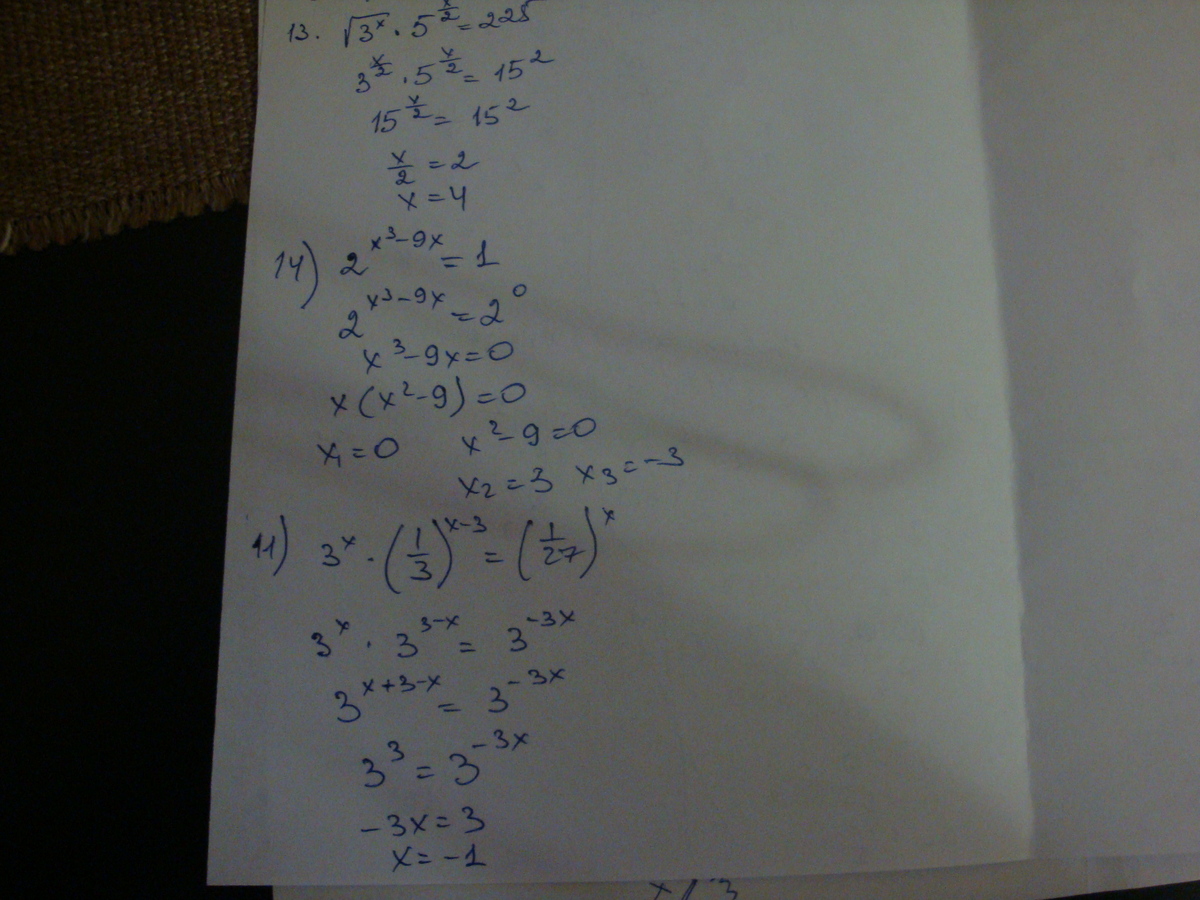 13. √3^x · 5^(x/2) = 225
3^(x/2) · 5^(x/2) = 15^2
15^(x/2) = 15^2
x/2 = 2
x = 4
14) 2^(x^3-9x) = 1
2^(x^3-9x) = 2^0
x^3-9x=0
x(x^2-9)=0
x₁=0 x^2-9=0
x₂=3 x₃=-3
11) 3^x · (1/3)^(x-3) = (1/27)^x
3^x · 3^(3-x) = 3^(-3x)
3^(x+3-x) = 3^(-3x)
3^3 = 3^(-3x)
-3x=3
x=-1